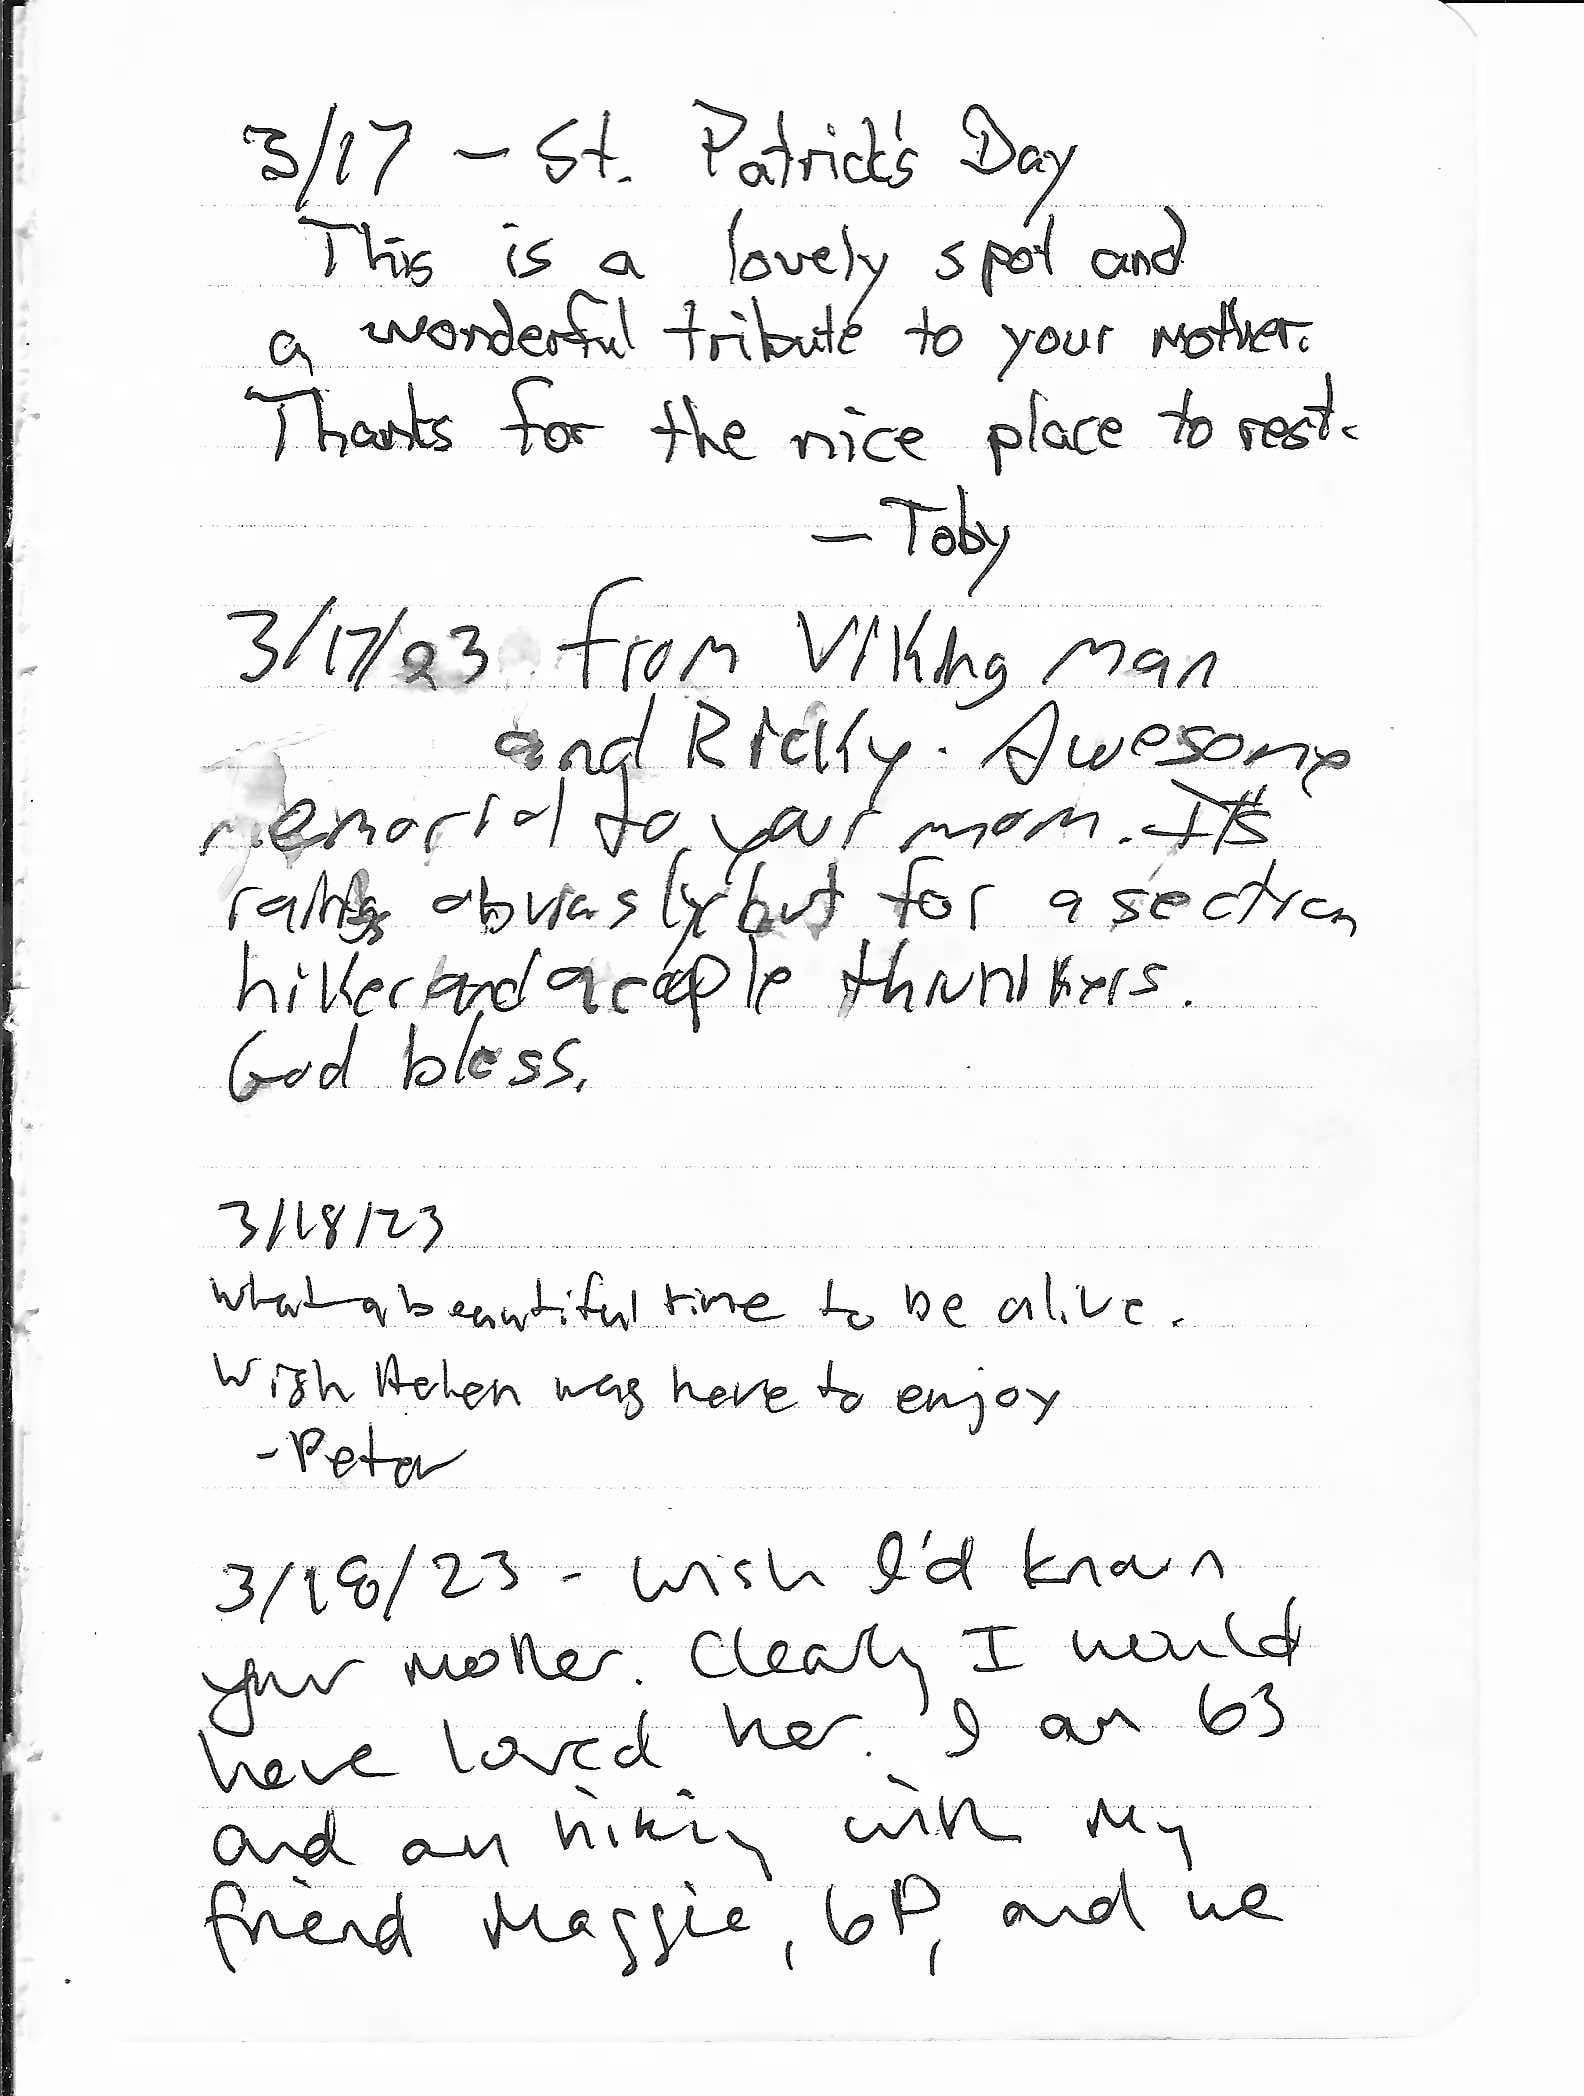 3/17 - St. Patrick's Day
This is a lovely spot and
a wonderful tribute to your mother.
Thanks for the nice place to rest.
- Toby
3/17/23 from Viking man
and Ricky. Awesome
memorial to your mom. It's
obviasly but for a section
hiker and a cople thruhikers.
God bless.
3/18/23
What a beautiful time to be alive.
Wish Helen was here to enjoy
- Peter
3/18/23 - Wish I'd known
your mother. Clearly I would
have loved her. I am 63
and am hiking with my
friend Maggie, and we